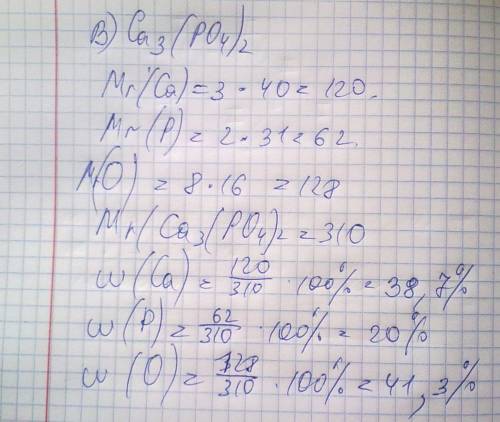 В) Ca₃(PO₄)₂
Mr(Ca) = 3 · 40 = 120.
Mr(P) = 2 · 31 = 62.
Mr(O) = 8 · 16 = 128
Mr(Ca₃(PO₄)₂ = 310
w(Ca) = 120/310 · 100% = 38,7%
w(P) = 62/310 · 100% = 20%
w(O) = 128/310 · 100% = 41,3%